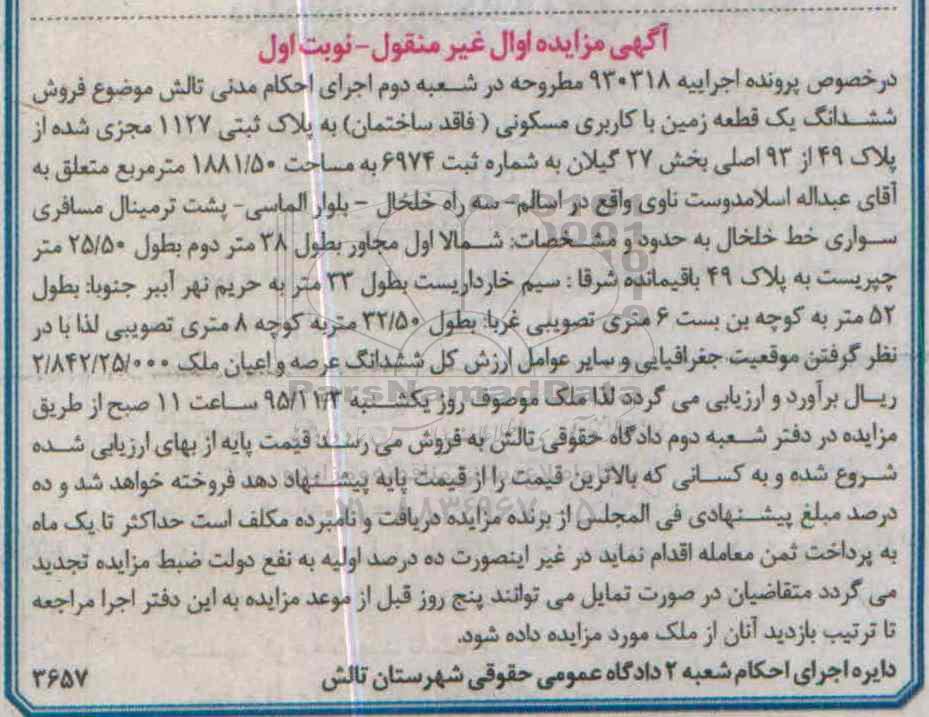 آگهی مزایده اوال غیر منقول-نوبت اول
درخصوص پرونده اجراییه ۹۳۰۳۱۸ مطروحه در شعبه دوم اجرای احکام مدنی تالش موضوع فروش
ششدانگ یک قطعه زمین با کاربری مسکونی ( فاقد ساختمان) به پلاک ثبتی ۱۱۲۷ مجزی شده از
پلاک ۴۹ از ۹۳ اصلی بخش ۲۷ گیلان به شماره ثبت ۶۹۷۴ به مساحت ۱۸۸۱/۵۰ مترمربع متعلق به
آقای عبداله اسلامدوست ناوی واقع در اسالم- سه راه خلخال - بلوار الماسی- پشت ترمینال مسافری
سواری خط خلخال به حدود و مشخصات: شمالا اول مجاور بطول ۳۸ متر دوم بطول ۲۵/۵۰ متر
چپریست به پلاک ۴۹ باقیمانده شرقا : سیم خارداریست بطول ۳۳ متر به حریم نهر آببر جنوبا: بطول
۵۲ متر به کوچه بن بست ۶ متری تصویبی غربا: بطول ۳۲/۵۰ متربه کوچه ۸ متری تصویبی لذا با در
نظر گرفتن موقعیت جغرافیایی و سایر عوامل ارزش کل ششدانگ عرصه و اعیان ملک ۲/۸۴۲/۲۵/۰۰۰
ریال برآورد و ارزیابی می گردد لذا ملک موصوف روز یکشنبه ۹۵/۱۱/۳ ساعت ۱۱ صبح از طریق
مزایده در دفتر شعبه دوم دادگاه حقوقی تالش به فروش می رسد: قیمت پایه از بهای ارزیابی شده
شروع شده و به کسانی که بالاترین قیمت را از قیمت پایه پیشنهاد دهد فروخته خواهد شد و ده
درصد مبلغ پیشنهادی فی المجلس از برنده مزایده دریافت و نامبرده مکلف است حداکثر تا یک ماه
به پرداخت ثمن معامله اقدام نماید در غیر اینصورت ده درصد اولیه به نفع دولت ضبط مزایده تجدید
می گردد متقاضیان در صورت تمایل می توانند پنج روز قبل از موعد مزایده به این دفتر اجرا مراجعه
تا ترتیب بازدید آنان از ملک مورد مزایده داده شود.
دایره اجرای احکام شعبه ۲ دادگاه عمومی حقوقی شهرستان تالش ۳۶۵۷
ParsNamadData